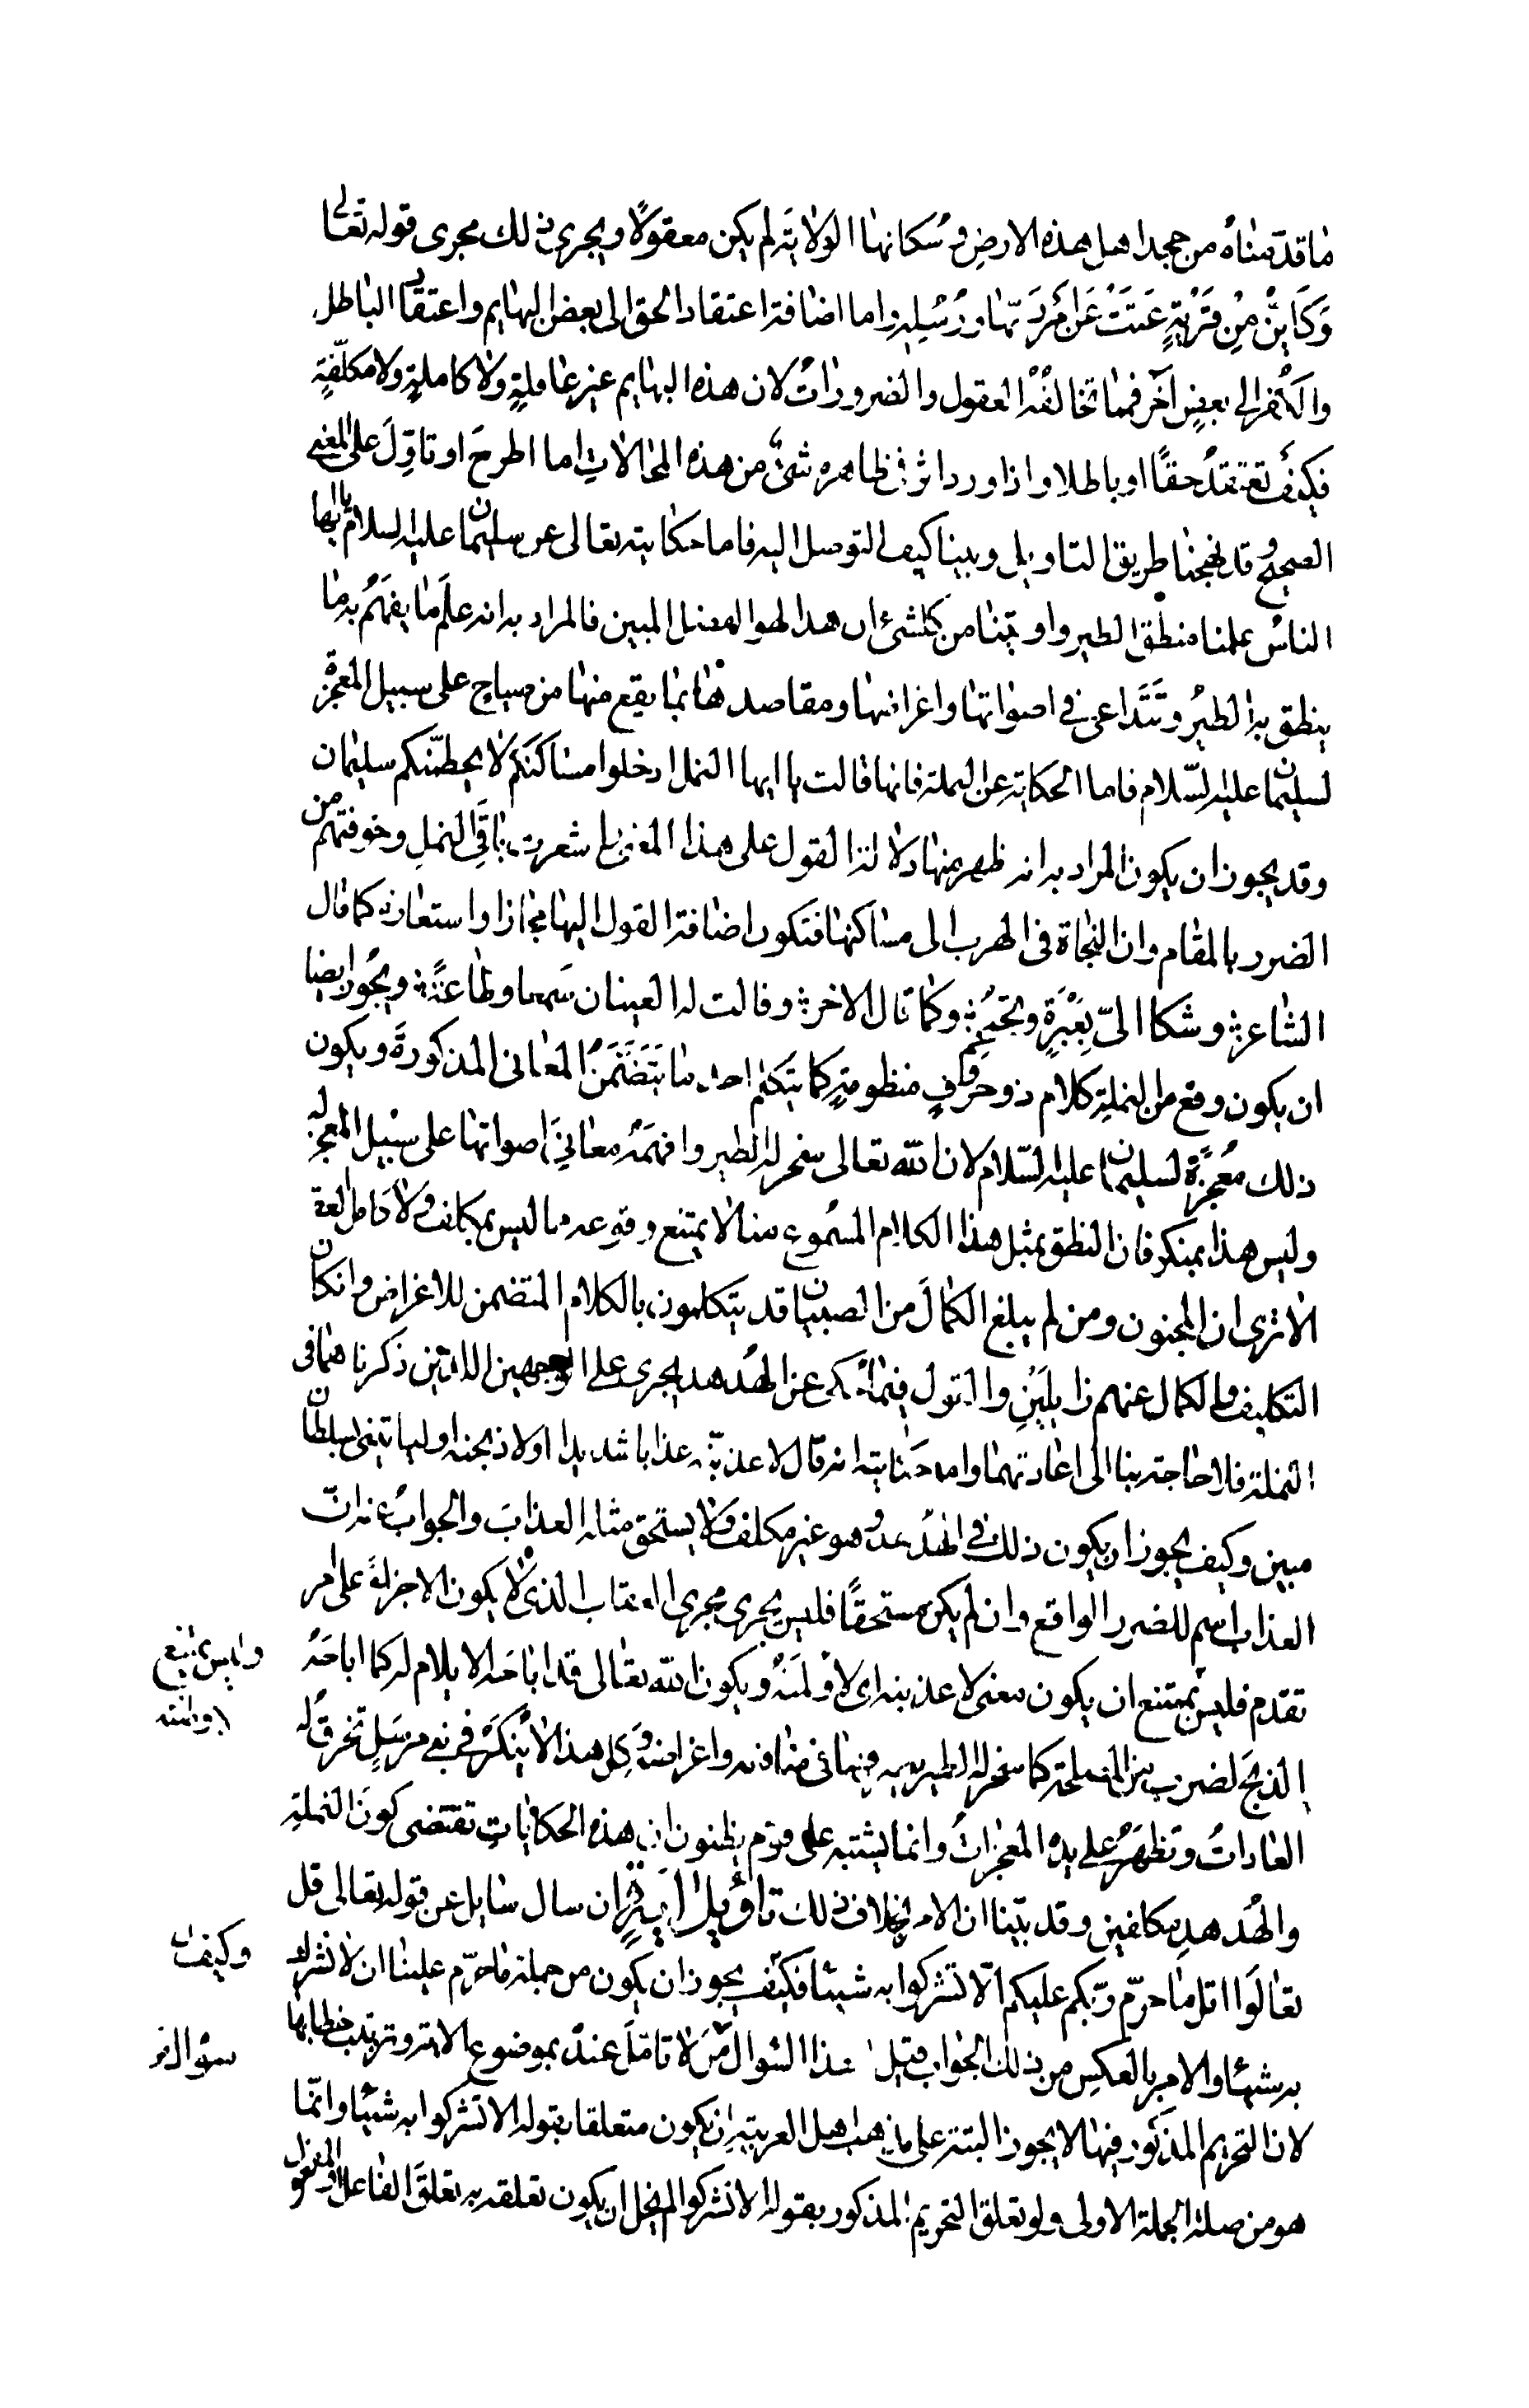 ما قدّمناه من جحد اهل هذه الارض وسُكانها الولاية لم يكن معقولا ويجرى ذلك مجرى قوله تعالى
وَكَاَيِّنْ مِنْ قَرْيَةٍ عَتَتْ عَنْ اَمْرِ رَبِّهَا وَرُسُلِهِ واما اضافة اعتقاد الحق الى بعض البهايم واعتقاد الباطل
والكفر الى بعضٍ آخر فمما تخالفه العقول والضرورات لان هذه البهايم غير عاقلةٍ ولا كاملةٍ ولا مكلّفةٍ
فكيف تعتقد حقًا او باطلا واذا ورد اثر فى ظاهره شئ من هذه المحالات اما اطرح او تاوّل على المعنى
الصحيح وقد نهجنا طريق التاويل وبينا كيف التوصل اليه فاما حكايته تعالى عن سليمان عليه السلام يا ايها
الناس علمنا منطق الطير واوتينا من كلشئ ان هذا لهو الفضل المبين فالمراد به انه علم ما يفهم به ما
ينطق به الطير وتتداعى فى اصواتها واغراضها ومقاصدها بما يقع منها من صياح على سبيل المعجزة
لسليمان عليه السّلام فاما الحكاية عن النملة فانها قالت يا ايها النمل ادخلوا مساكنكم لا يحطمنّكم سليمان
وقد يجوز ان يكون المراد به انه ظهر منها دلالة القول على هذا المعنى شعرت باقى النمل وخوفتهم من
الضرر بالمقام وان النجاة فى الهرب الى مساكنها فتكون اضافة القول اليها مجازا واستعارة كما قال
الشاعر وشكا الىّ بِعَبْرَةٍ وتحمحم وكما قال الاخر وقالت له العينان سمعا وطاعة ويجوز ايضا
ان يكون وقع من النملة كلام ذو حروفٍ منظومةٍ كما يتكلم احدنا يتضمن المعانى المذكورة ويكون
ذلك معجزة لسليمان عليه السّلام لان الله تعالى سخر له الطير وافهمه معانى اصواتها على سبيل المعجز له
وليس هذا بمنكر فان النطق بمثل هذا الكلام المسموع منا لا يمتنع وقوعه مما ليس بمكلف ولا كامل العقل
الا ترى ان المجنون ومن لم يبلغ الكمال من الصبيان قد يتكلمون بالكلام المتضمن للاغراض وان كان
التكليف والكمال عنهم زايلين والقول فيما حكى عن الهدهد يجرى على الوجهين اللذين ذكرناهما فى
النملة فلا حاجة بنا الى اعادتهما واما حكايته انه قال لاعذبنّه عذابا شديدا اولاذبحنه او لياتينى بسلطان
مبين وكيف يجوز ان يكون ذلك فى الهدهد وهو غير مكلف ولا يستحق مثله العذاب والجواب عنه انّ
العذاب اسم للضرر الواقع وان لم يكن مستحقًا فليس يجرى مجرى العقاب الذى لا يكون الا جزاءً على امر
تقدم فليس بممتنع ان يكون معنى لاعذبنه اى لاولمنّه ويكون الله تعالى قد اباحه الايلام له كما اباحه
الذبح لضرب من المصلحة كما سخر له الطير يصرفها فى منافعه واغراضه وكل هذا لا ينكر فى نبى مرسل تخرق له
العادات وتظهر على يده المعجزات وانما يشتبه على قوم يظنون ان هذه الحكايات تقتضى كون النملة
والهدهد مكلفين وقد بيّنا ان الامر بخلاف ذلك تاويل اية ان سال سايل عن قوله تعالى قل
تعالوا اتل ما حرّم ربّكم عليكم الّا تشركوا به شيئا فكيف يجوز ان يكون من جملة ما حرّم علينا ان لا نشرك
به شيئا والامر بالعكس من ذلك الجواب قيل هذا السّوال من لا تامّل عنده بموضوع الاية وترتيب خطابها
لان التحريم المذكور فيها لا يجوز البتة على مذهب اهل العربية ان يكون متعلقا بقوله الا تشركوا به شيئا وانّما
هو من صلة الجملة الاولى ولو تعلق التحريم المذكور بقوله الا تشركوا لم يخل ان يكون تعلقه به تعلق الفاعل او المفعول
وليس يمتنع
وكيف
سؤال